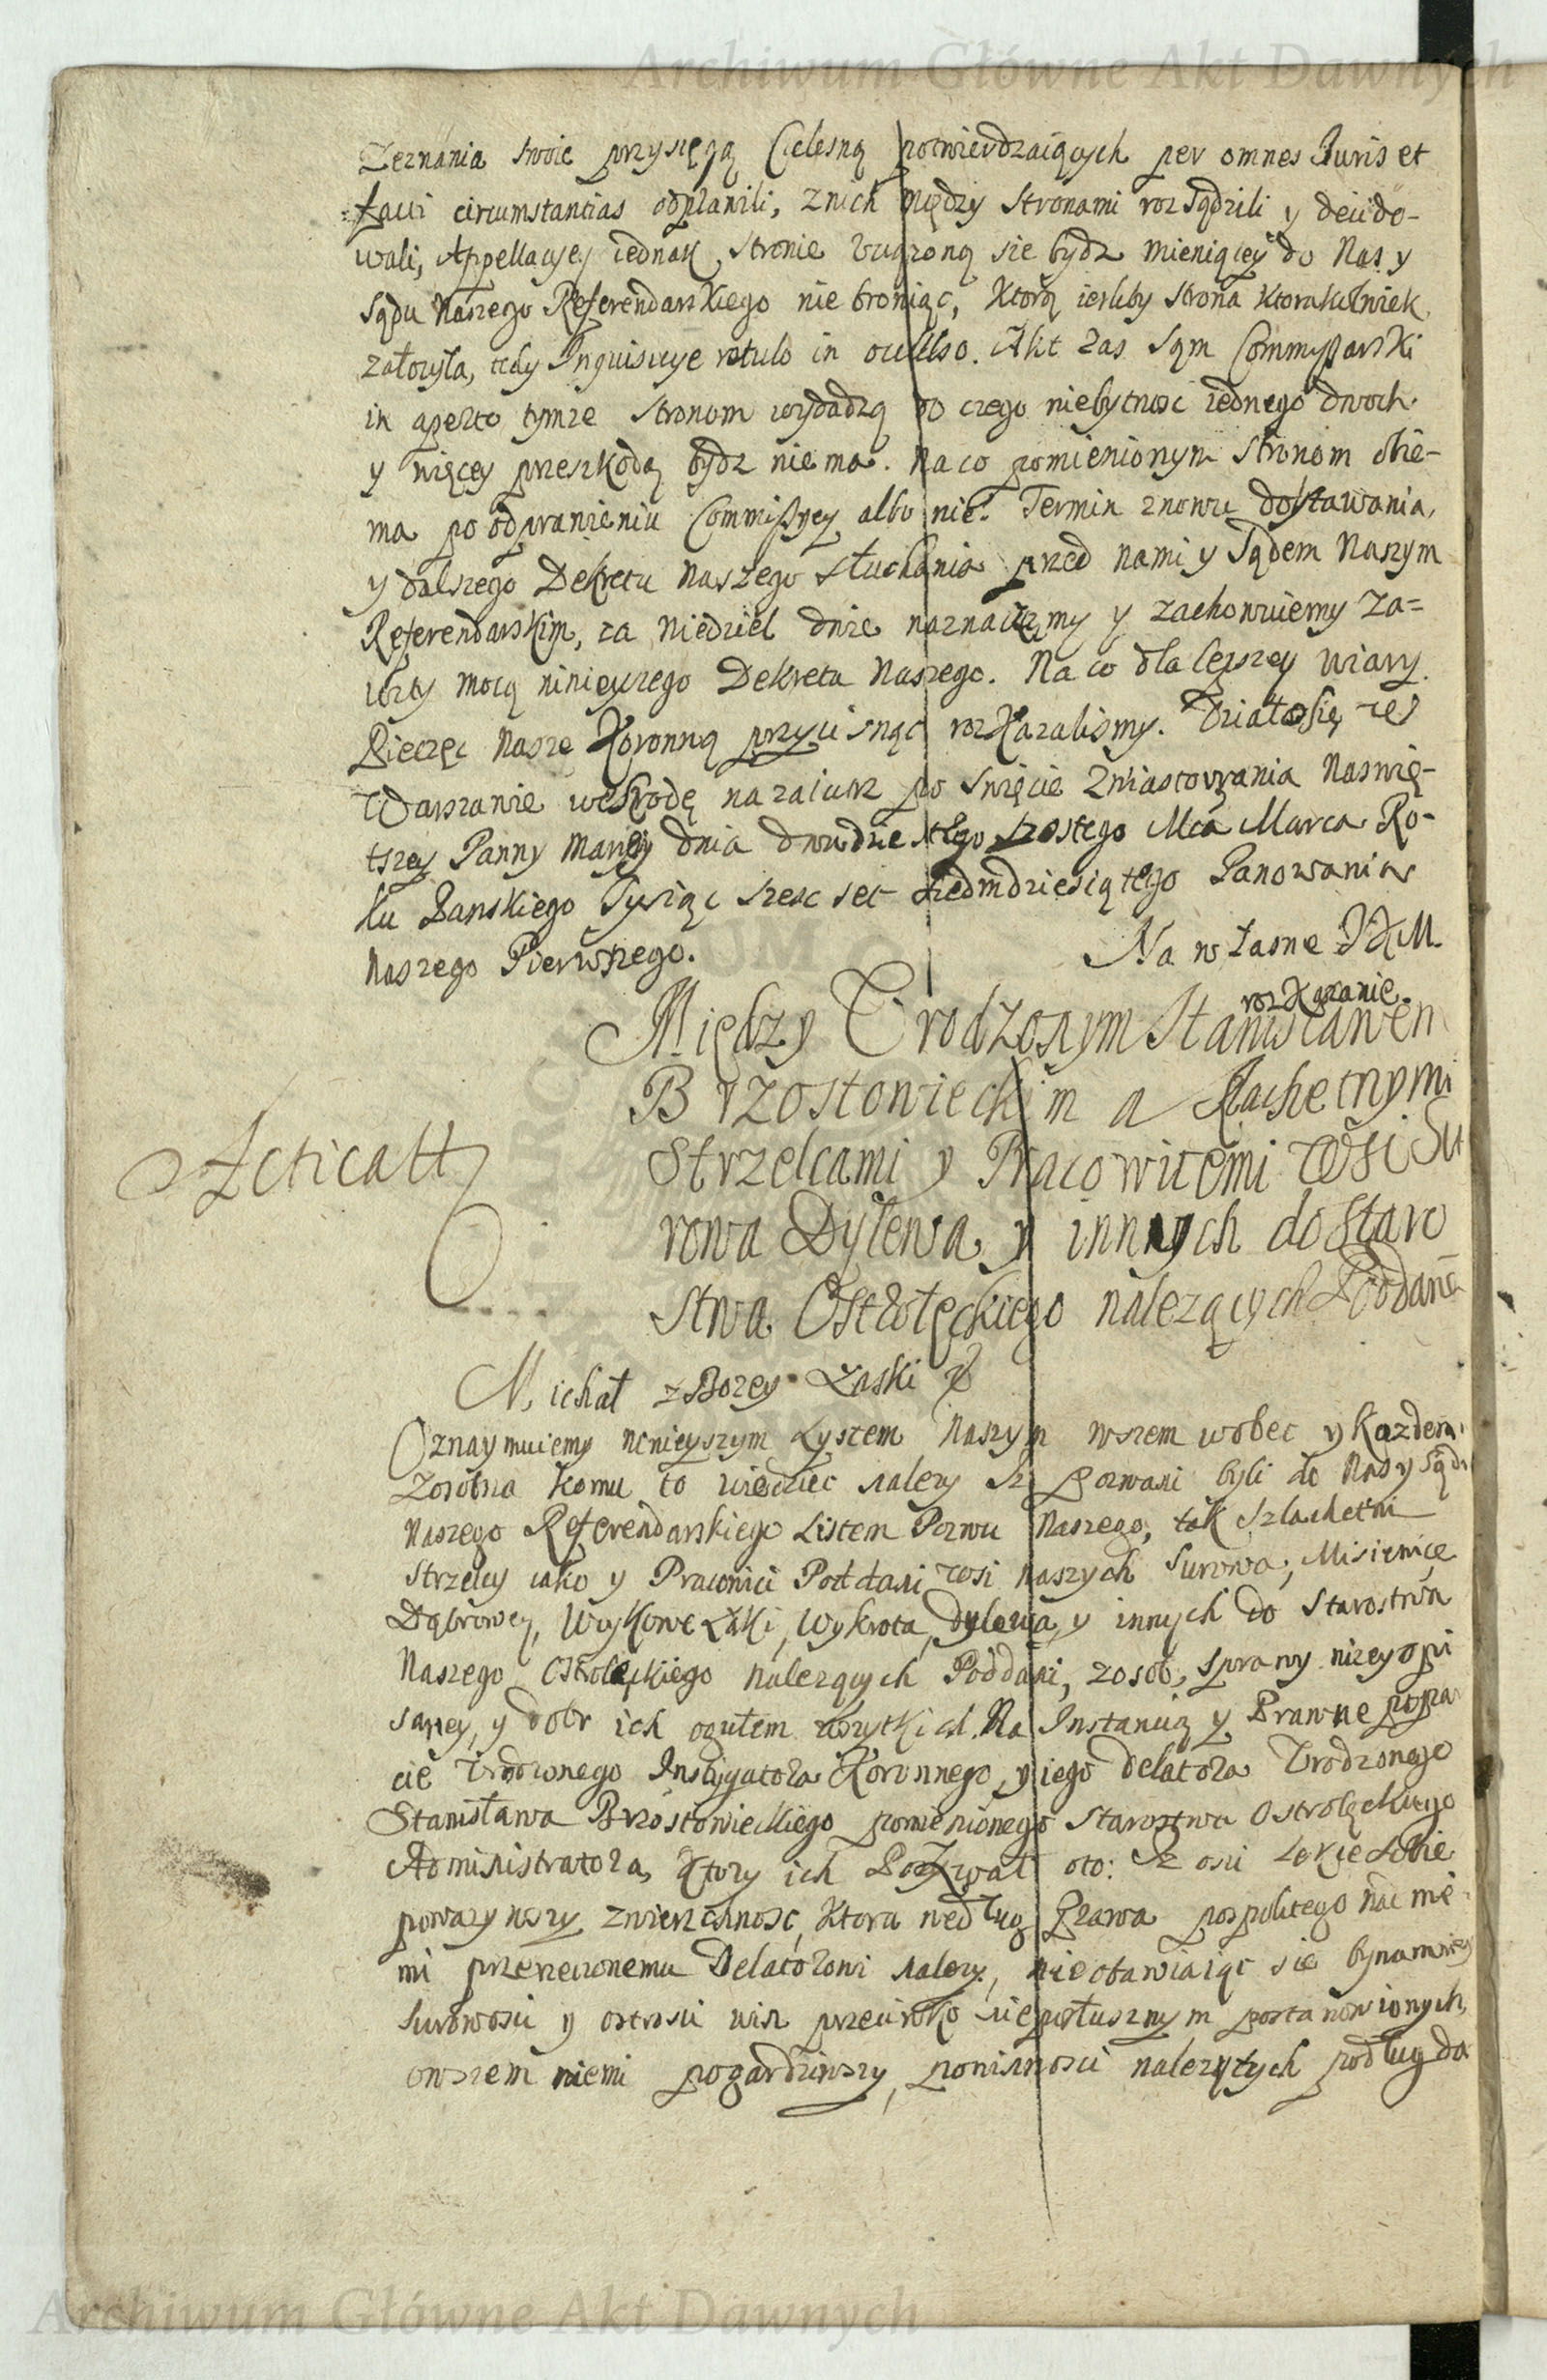 Archiwum Główne Akt Dawnych
Zeznania swoie przysięgą Cielesną potwierdzaiących per omnes Iuris et
facti circumstantias odprawili, z nich między Stronami rozsądzili y decido-
wali, Appellacyey iednak, Stronie bydz mieniącey do Nas y
Sądu Naszego Referendarskiego nie broniąc, Ktorą iesliby Strona Ktorakolwiek
załozyła, tedy Inquisicye rotulo in occluso. Akt zas sąm Commissarski
in aperto tymze Stronom wydadzą do czego niebytnosc iednego dwoch
y więcey przeszkodą bydz nie ma. Na co pomienionym Stronom obie-
ma po odprawieniu Commissyey albo nie. Termin znowu dostawania,
y dalszego Dekretu Naszego słuchania przed nami y Sądem Naszym
Referendarskim, za Niedziel dwie naznaczamy y zachowuiemy za-
wity mocą ninieyszego Dekretu Naszego. Na co dla lepszey wiary
Pieczęc Nasze Koronną przycisnąc rozkazalismy. Działo się w
Warszawie we Srodę nazaiutrz po Swięcie Zwiastowania Naswię-
tszey Panny Maryey dnia dwudziestego szostego Mca Marca Ro-
ku Panskiego Tysiąc szesc set siedmdziesiątego Panowania
Naszego Pierwszego.
Na własne JKM
rozkazanie.
Między Urodzonym Stanisławem
Brzostowieckim a Szlachetnymi
Strzelcami y Pracowitemi Wsi Su
rowa Dylewa y innych do Staro
stwa Ostrołęckiego nalezących Poddane
Michał z Bozey Łaski
Oznaymuiemy ninieyszym Lystem Naszym wszem wobec y kazdem
Zosobna komu to wiedziec nalezy Iz pozwani byli do Nas y Sądu
Naszego Referendarskiego Listem Pozwu Naszego, tak Szlachetni
Strzelcy iako y Pracowici Poddani wsi naszych Surowa, Misienice
Dąbrowey, Wykowe Łąki, Wykrota, Dylewa, y innych do Starostwa
Naszego Ostrołęckiego nalezących Poddani, z osob, sprawy nizey opi
saney, y dobr ich ogułem wszytkich. Na Instancią y Prawne popar
cie Urodzonego Instygatora Koronnego, y iego delatora Urodzonego
Stanisława Brzostowieckiego pomienionego Starostwa Ostrołęckiego
Administratora, Ktory ich Pozwał oto: Iz oni Lekce sobie
powazywszy zwierzchnosc, Ktora według Prawa pospolitego nad nie
mi przerzeczonemu Delatorowi nalezy, nieobawiaiąc się bynamniey
surowosci y ostrosci win przeciwko nieposłusznym postanowionych,
owszem niemi pogardziwszy, powinnosci nalezytych podług da
Acticatt
Archiwum Główne Akt Dawnych